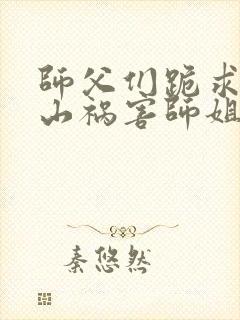 師父们跪求
山祸害師姐
秦悠然